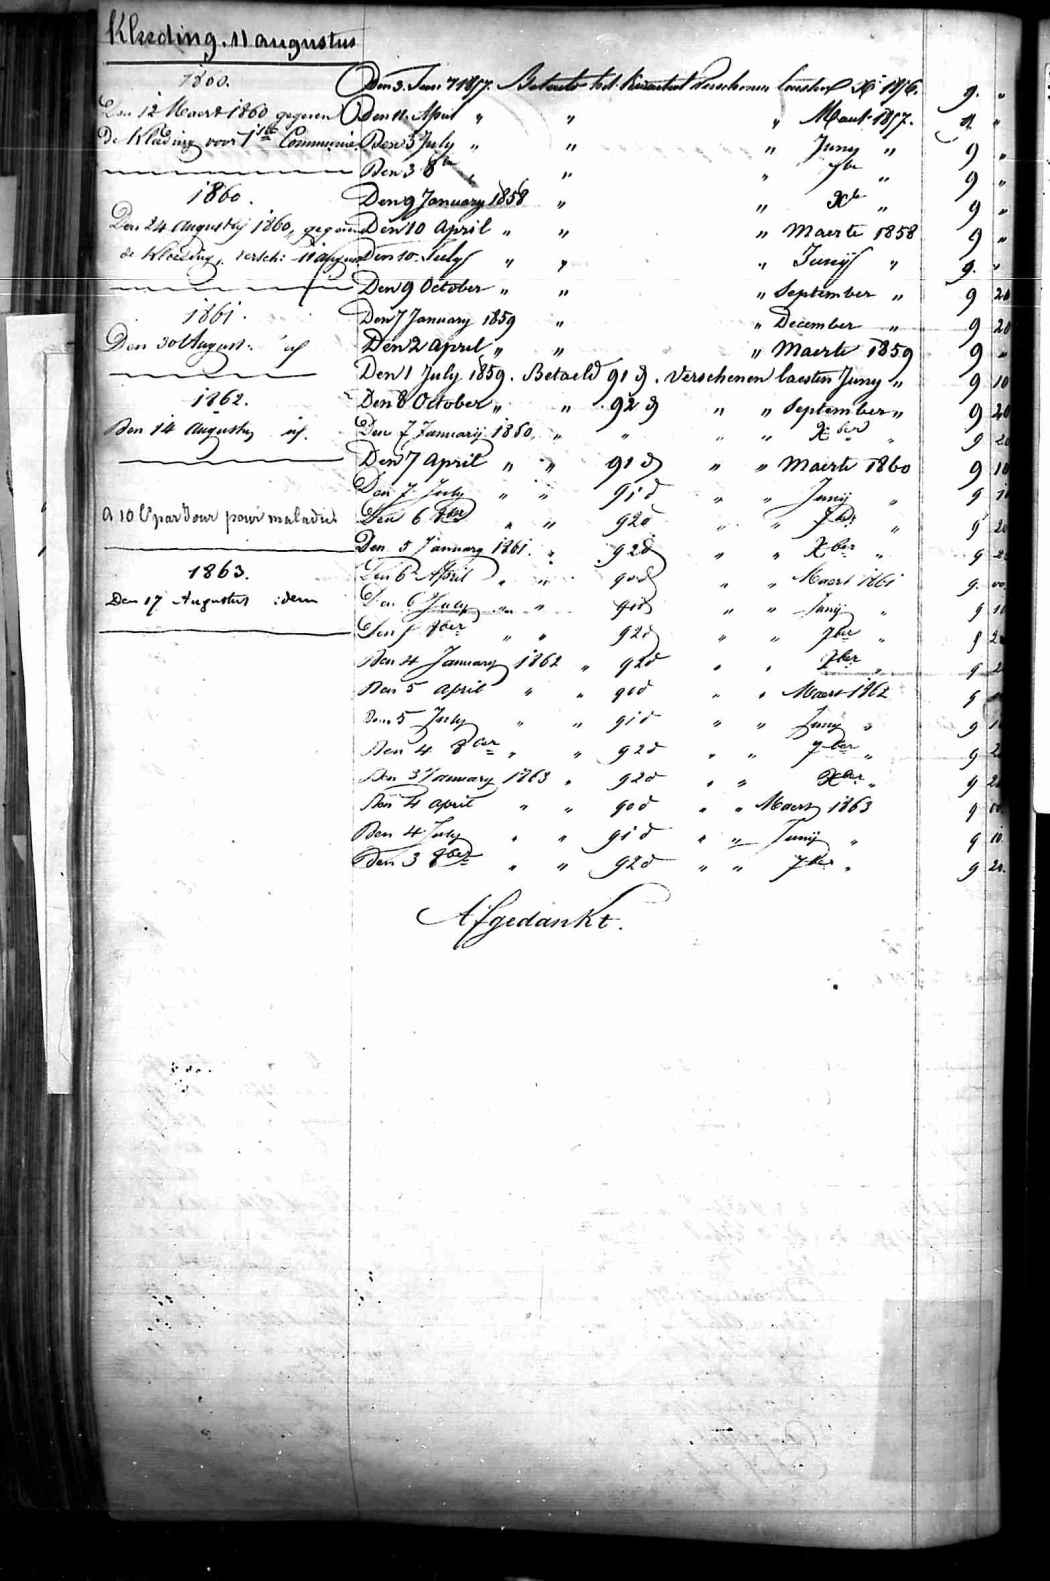 Kleeding. 11 augustus
1860.
Den 12 Maert 1860 gegeven
De Kleeding voor 1ste Communie
1860.
Den 24 Augusty 1860, gegeven
de Kleeding, versch: 11 augus
1861.
Den 30 August: id
1862.
Den 14 Augusty id.
a 10 C par Jour pour maladie
1863.
Den 17 Augustus idem
Den 3. Janr 1857. Betaeld het verschenen Xr 1856. 9. "
Den 11. April " " " Maart 1857. 9. "
Den 3 July " " " Juny " 9 "
Den 3 8br " " " 7br " 9 "
Den 9 January 1858 " " Xbr " 9 "
Den 10 April " " " Maerte 1858 9 "
Den 10. July " " " Junij " 9. "
Den 9 October " " " September " 9 20
Den 7 January 1859 " " December " 9 20
Den 2 April " " " Maerte 1859 9 "
Den 1 July 1859. Betaeld 91 d. verschenen laesten Juny " 9 10
Den 8 October " " 92 d " " September " 9 20
Den 7 Januarij 1860, " " " " Xber " 9 20
Den 7 April " " 91 d " " Maerte 1860 9 10
Den 7 July " " 91 d " " Junij " 9 10
Den 6 8ber " " 92 d " " 7br " 9 20
Den 5 January 1861 " 92 d " " Xber " 9 20
Den 6 April " " 90 d " " Maert 1861 9. 00
Den 6 July " " 91 d " " Junij " 9 10
Den 5 8ber " " 92 d " " 7ber " 9 20
Den 4 January 1862 " 92 d " " " 9 20
Den 5 April " " 90 d " " Maert 1862 9
Den 5 July " " 91 d " " Juny " 9 10
Den 4 8ber " " 92 d " " 7ber " 9 20
Den 3 January 1863 " 92 d " " Xber " 9 20
Den 4 April " " 90 d " " Maert 1863 9 00
Den 4 July " " 91 d " " Junij " 9 10
Den 3 8ber " " 92 d " " 7ber " 9 20.
Afgedankt.